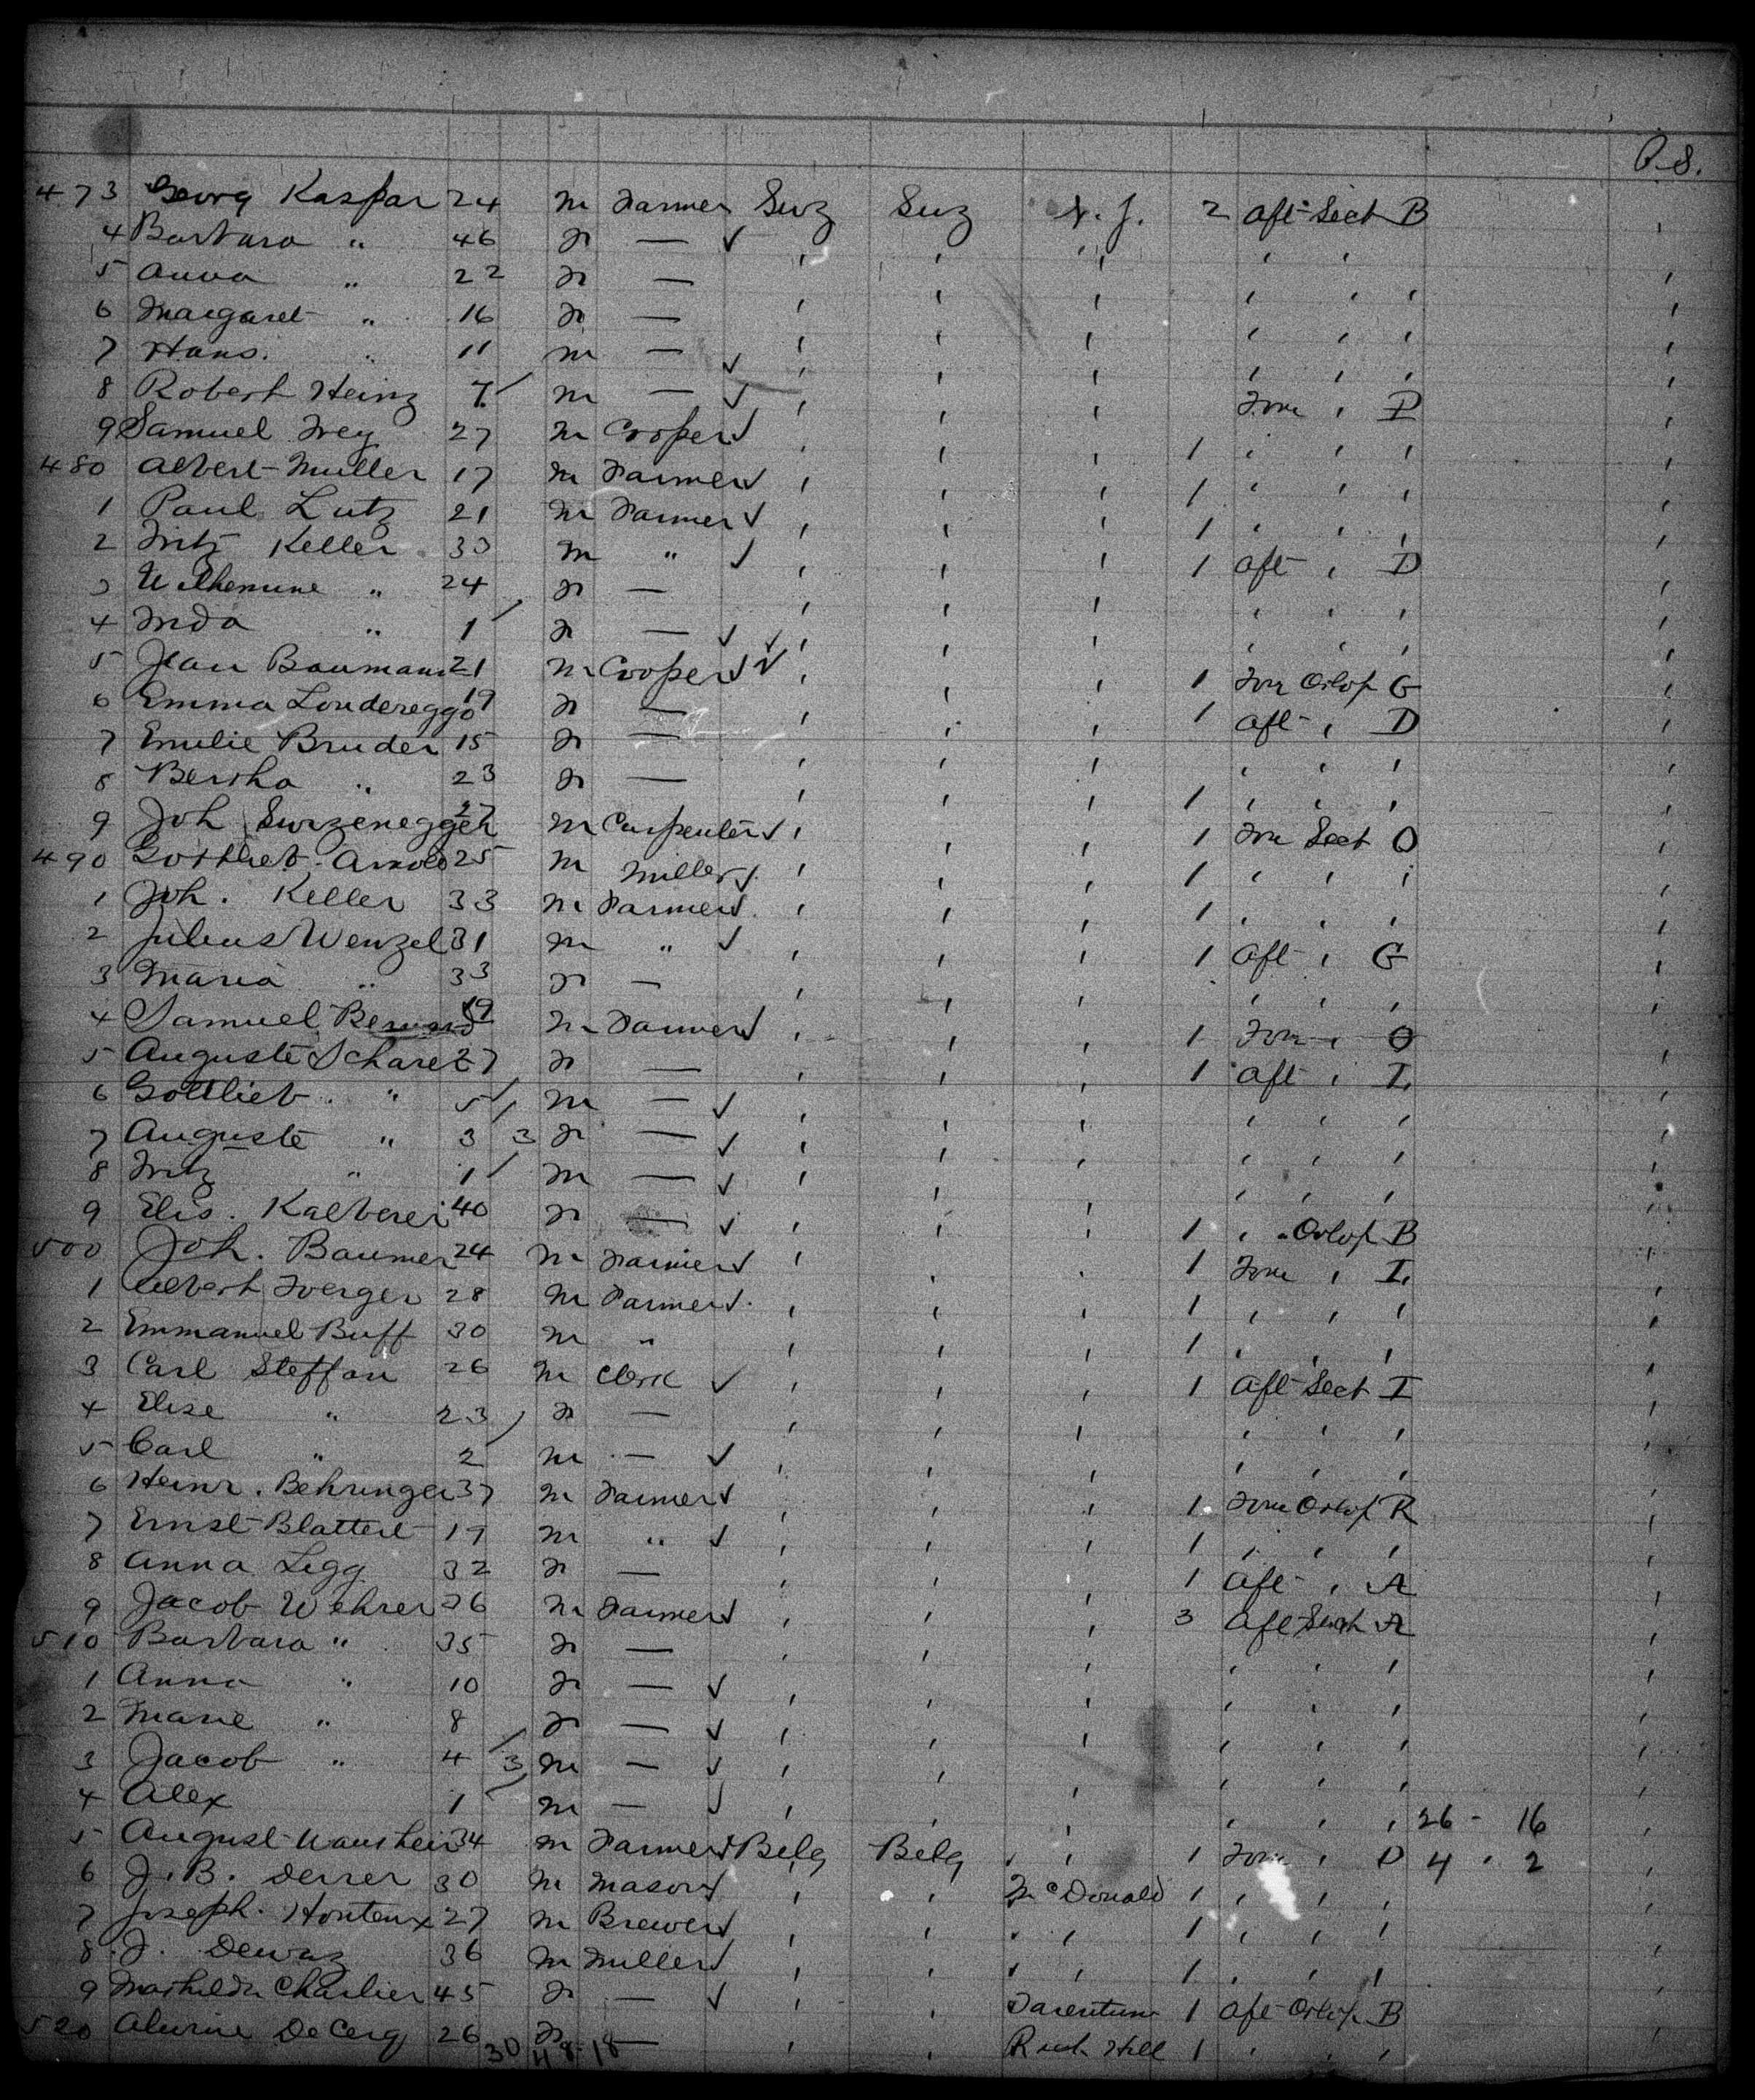 P.S.
473 Georg Kaspar 24 m Farmer Swz Swz N.J. 2 Aft Sect B
4 Barbara " 46 f — ✓ ' ' ' ' '
5 Anna " 22 f — ' ' ' ' ' '
6 Margaret " 16 f — ' ' ' ' ' '
7 Hans " 11 m — ✓ ' ' ' ' ' '
8 Robert Heinz 7 m — ✓ ' ' ' Fore ' D
9 Samuel Frey 27 m Cooper ✓ ' ' ' 1 ' ' '
480 Albert Muller 17 m Farmer ✓ ' ' ' 1 ' ' '
1 Paul Lutz 21 m Farmer ✓ ' ' ' 1 ' ' '
2 Fritz Keller 33 m " ✓ ' ' ' 1 Aft ' D
3 Wilhemine " 24 f — ' ' ' ' ' '
4 Frida " 1 f — ✓ ' ' ' ' ' '
5 Jean Baumann 21 m Cooper ✓ ' ' ' 1 Fore Orlop G
6 Emma Londereggo 19 f — ' ' ' 1 Aft ' D
7 Emilie Bruder 15 f — ' ' ' ' ' '
8 Bertha " 23 f — ' ' ' 1 ' ' '
9 Joh 27 m Carpenter ✓ ' ' ' 1 Fore Sect O
490 Gottlieb Arnold 25 m Miller ✓ ' ' ' 1 ' ' '
1 Joh. Keller 33 m Farmer ✓ ' ' ' 1 ' ' '
2 Julius Wenzel 31 m " ✓ ' ' ' 1 Aft ' G
3 Maria " 33 f — ' ' ' ' ' '
4 Samuel 19 m Farmer ✓ ' ' ' 1 Fore ' O
5 Auguste Scharer 27 f — ' ' ' 1 Aft ' I
6 Gottlieb " 5 m — ✓ ' ' ' ' ' '
7 Auguste " 3 3 f — ✓ ' ' ' ' ' '
8 Fritz " 1 m — ✓ ' ' ' ' ' '
9 Elis. Kalberer 40 f — ✓ ' ' ' 1 ' Orlop B
500 Joh. Baumer 24 m Farmer ✓ ' ' ' 1 Fore ' I
1 Albert 28 m Farmer ✓ ' ' ' 1 ' ' '
2 Emmanuel Buff 30 m " ' ' ' 1 ' ' '
3 Carl Steffan 26 m Clerk ✓ ' ' ' 1 Aft Sect I
4 Elise " 23 f — ' ' ' ' ' '
5 Carl " 2 m — ✓ ' ' ' ' ' '
6 Heinr. Behringer 37 m Farmer ✓ ' ' ' 1 Fore Orlop R
7 Ernst Blattert 19 m " ✓ ' ' ' 1 ' ' '
8 Anna Legg 32 f — ' ' ' 1 Aft ' A
9 Jacob Wehrer 36 m Farmer ✓ ' ' ' 3 Aft Sect A
510 Barbara " 35 f — ' ' ' ' ' '
1 Anna " 10 f — ✓ ' ' ' ' ' '
2 Marie " 8 f — ✓ ' ' ' ' ' '
3 Jacob " 4 3 m — ✓ ' ' ' ' ' '
4 Alex 1 m — ✓ ' ' ' ' ' ' 26 - 16
5 August 34 m Farmer ✓ Belg Belg ' ' 1 Fore ' O 4 . 2
6 J. B. Derrer 30 m Mason ✓ ' ' McDonald 1 ' ' '
7 Joseph. Honteux 27 m Brewer ✓ ' ' ' ' 1 ' ' '
8 J. 36 m Miller ✓ ' ' ' ' 1 ' ' '
9 Mathilda Charlier 45 f — ✓ ' ' Tarentum 1 Aft Orlop B
520 26 f — ' ' Hill 1 ' ' '
30 48-18